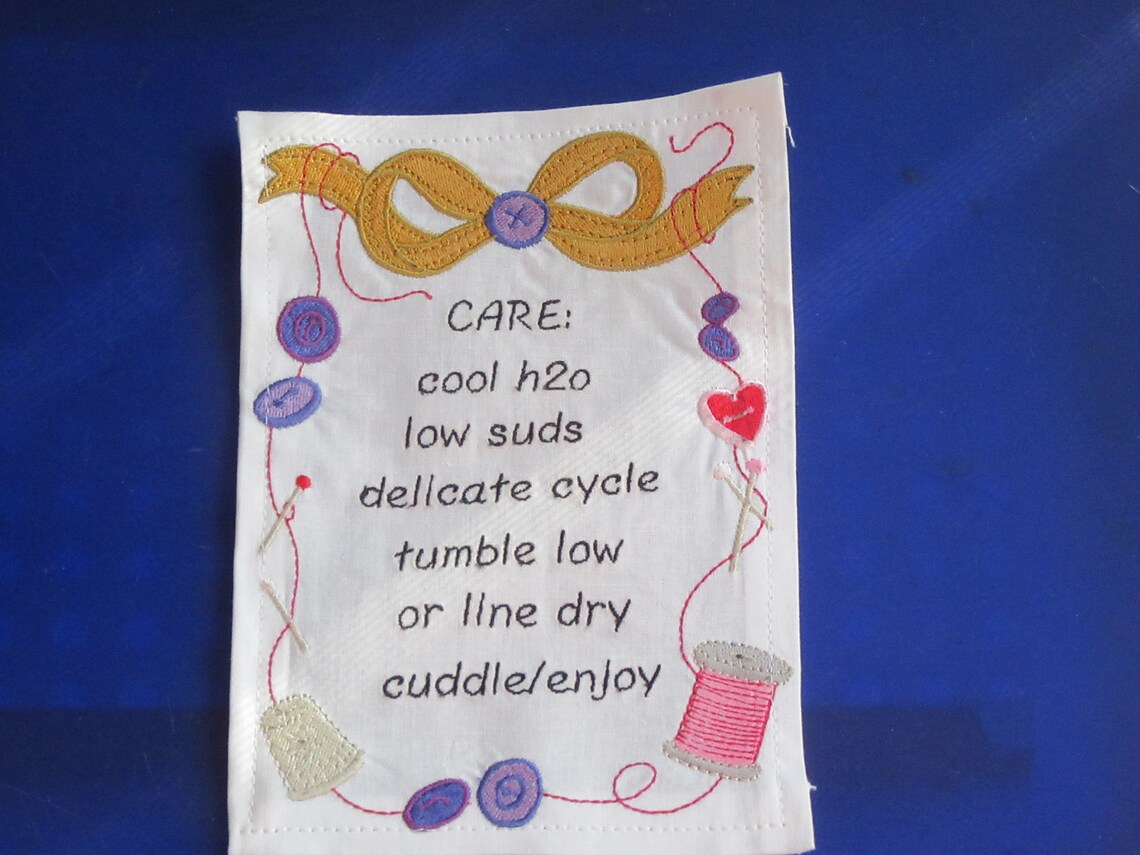 CARE:
cool h2o
low suds
delicate cycle
tumble low
or line dry
cuddle/enjoy